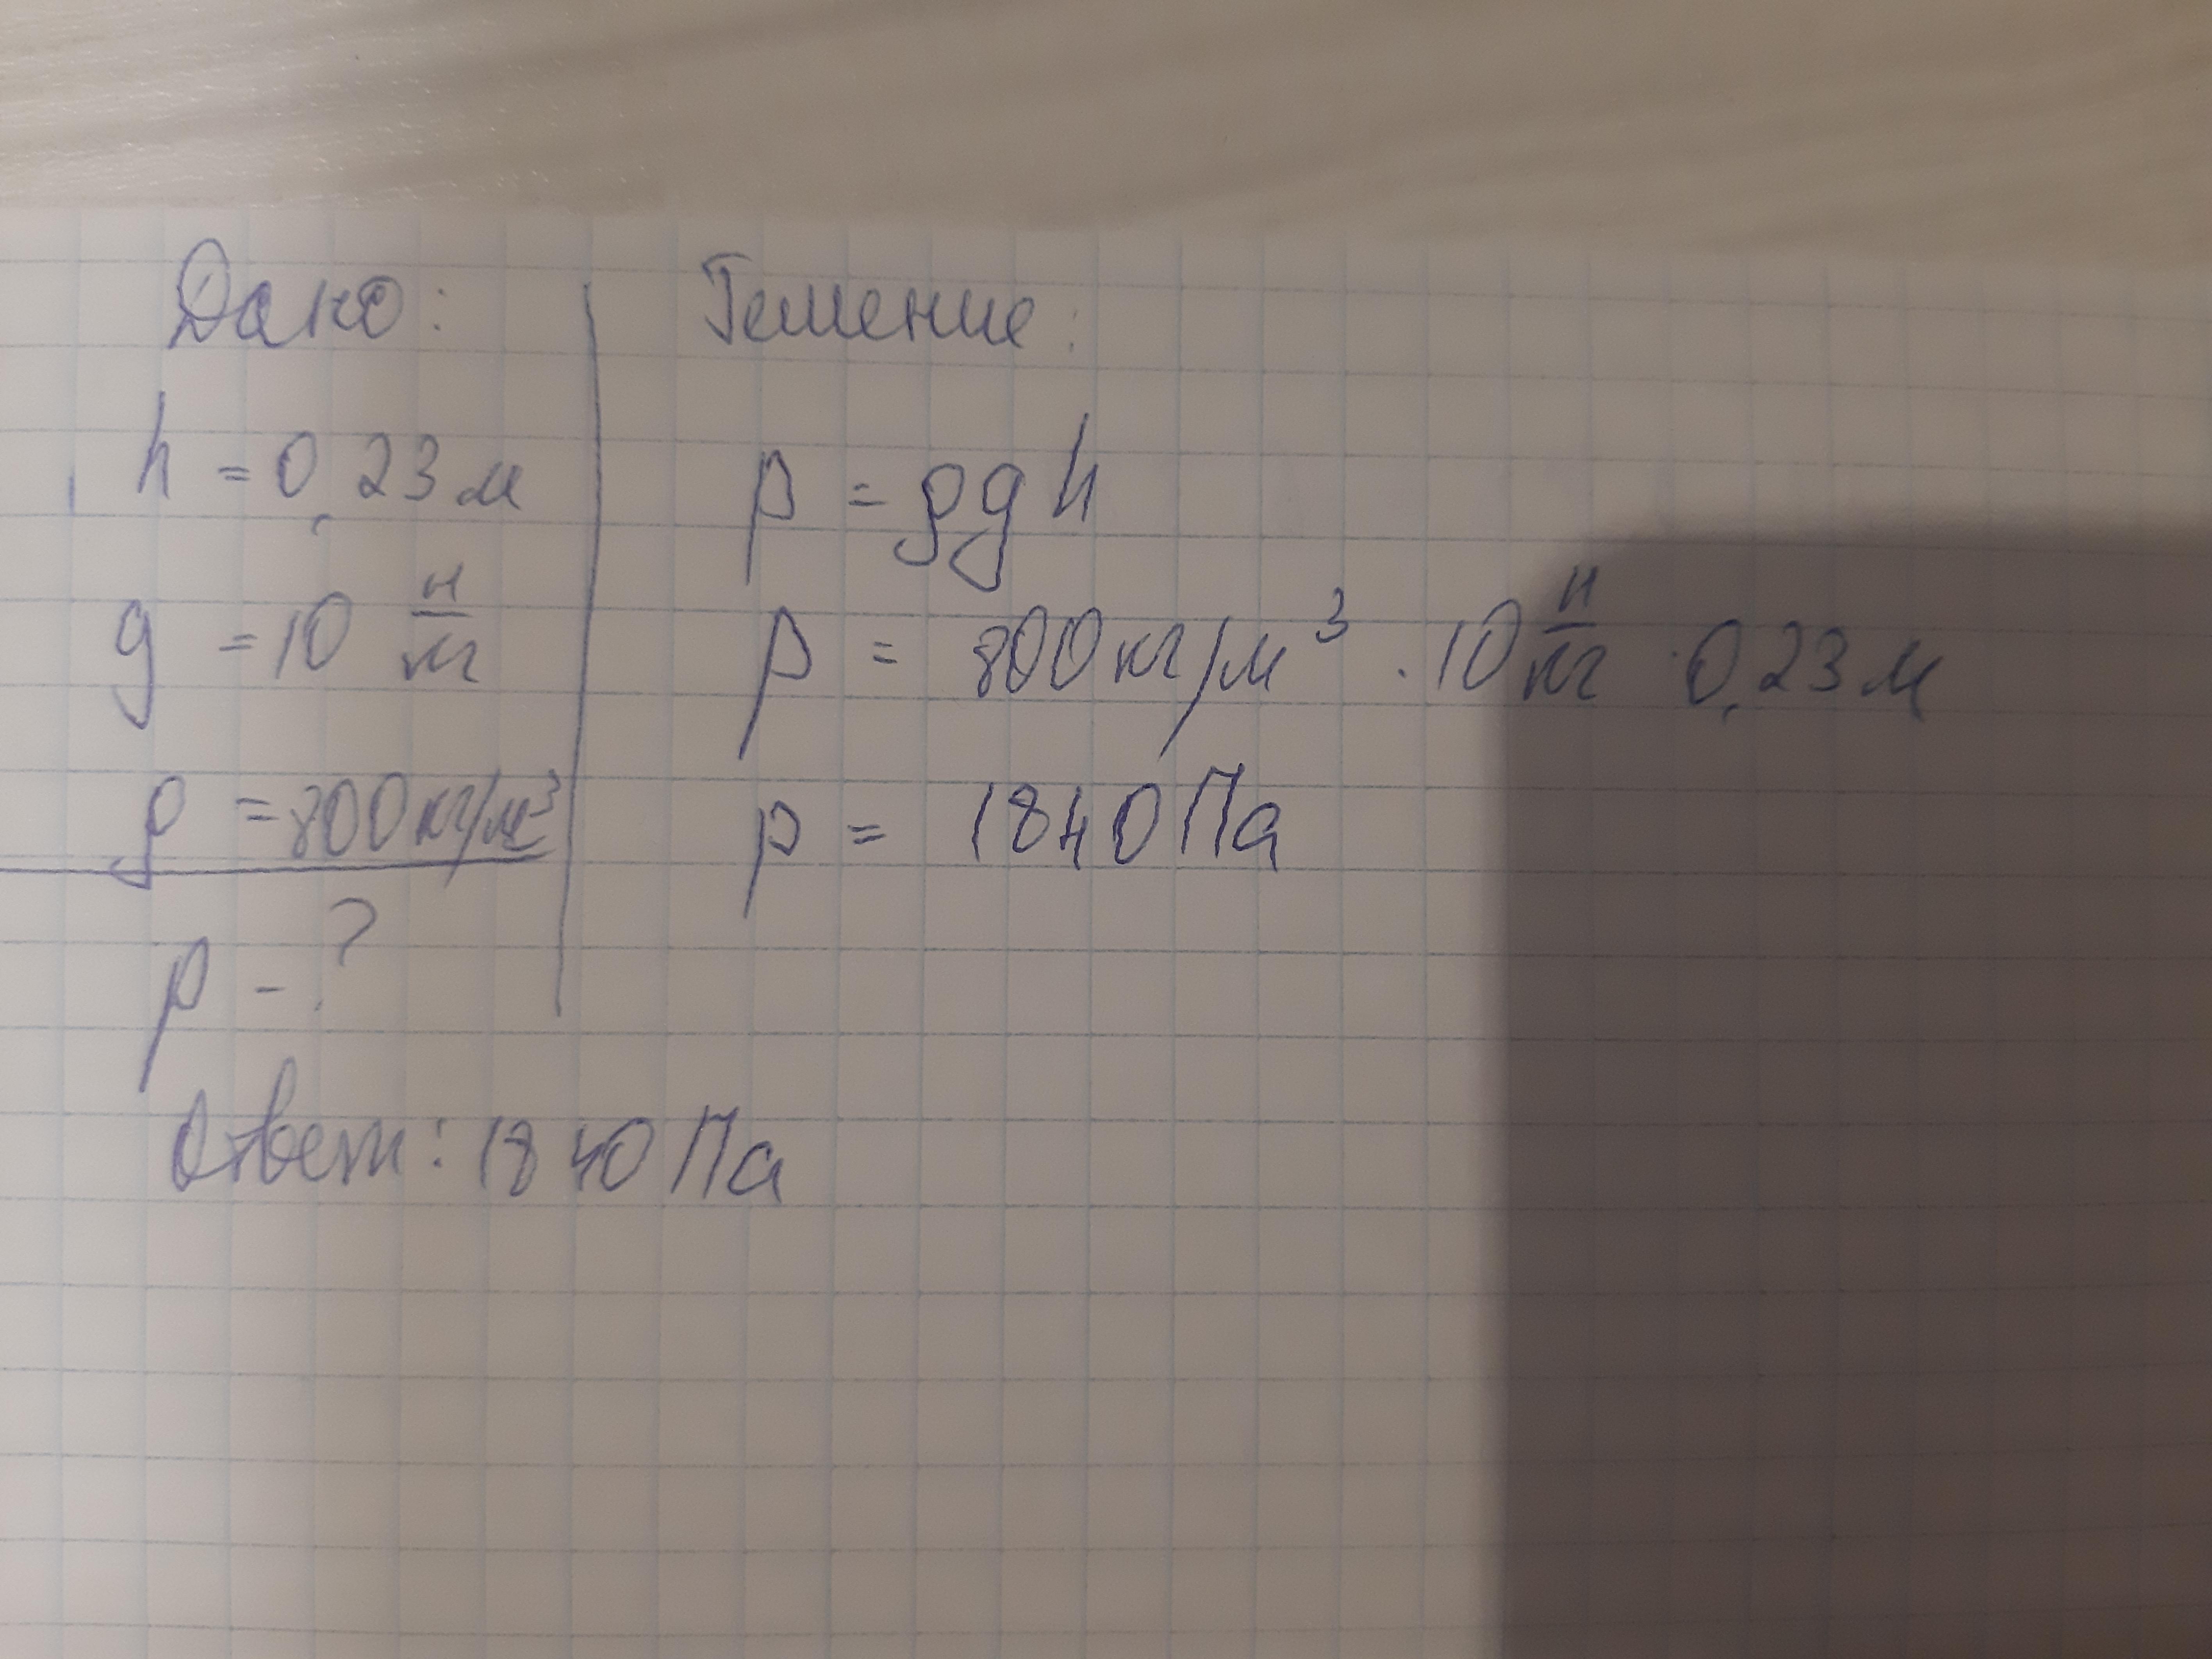 Дано:
h = 0,23 м
g = 10 н/кг
ρ = 800 кг/м³
p - ?
Решение:
p = ρgh
p = 800 кг/м³ · 10 н/кг · 0,23 м
p = 1840 Па
Ответ: 1840 Па